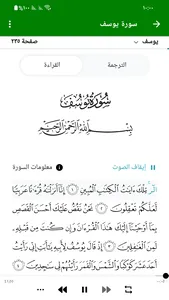 ١٠:٠٠
١٠٠٪
سورة يوسف
يوسف
صفحة ٢٣٥
الترجمة
القراءة
سُورَةُ يُوسُفَ
بِسْمِ اللَّهِ الرَّحْمَٰنِ الرَّحِيمِ
إيقاف الصوت
معلومات السورة
الٓر ۚ تِلْكَ آيَاتُ الْكِتَابِ الْمُبِينِ ١ إِنَّا أَنزَلْنَاهُ قُرْآنًا عَرَبِيًّا
لَّعَلَّكُمْ تَعْقِلُونَ ٢ نَحْنُ نَقُصُّ عَلَيْكَ أَحْسَنَ الْقَصَصِ
بِمَا أَوْحَيْنَا إِلَيْكَ هَٰذَا الْقُرْآنَ وَإِن كُنتَ مِن قَبْلِهِ
لَمِنَ الْغَافِلِينَ ٣ إِذْ قَالَ يُوسُفُ لِأَبِيهِ يَا أَبَتِ إِنِّي رَأَيْتُ
أَحَدَ عَشَرَ كَوْكَبًا وَالشَّمْسَ وَالْقَمَرَ رَأَيْتُهُمْ لِي سَاجِدِينَ ٤